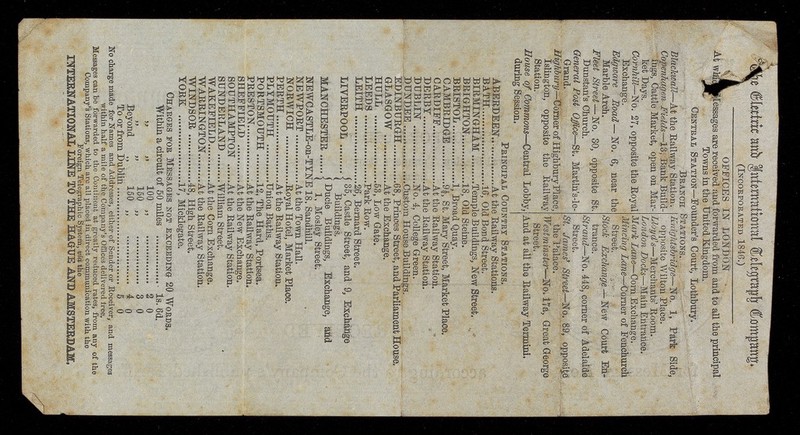 The Electric and International Telegraph Company.
(INCORPORATED 1846.)
OFFICES IN LONDON
At which Messages are received and forwarded from and to all the principal
Towns in the United Kingdom.
CENTRAL STATION—Founder's Court, Lothbury.
BRANCH STATIONS.
Blackwall—At the Railway Station.
Copenhagen Fields—13, Bank Buildings, Castle Market, open on Market Days.
Cornhill—No. 27, opposite the Royal Exchange.
Edgware Road—No. 6, near the Marble Arch.
Fleet Street—No. 30, opposite St. Dunstan's Church.
General Post Office—St. Martin's-le-Grand.
Highbury—Corner of Highbury Place, Islington, opposite the Railway Station.
House of Commons—Central Lobby, during Session.
Knightsbridge—No. 1, Park Side, opposite Wilton Place.
Lloyd's—Merchants' Room.
London Docks—Main Entrance.
Mark Lane—Corn Exchange.
Mincing Lane—Corner of Fenchurch Street.
Stock Exchange—New Court Entrance.
Strand—No. 448, corner of Adelaide Street.
St. James' Street—No. 89, opposite the Palace.
Westminster—No. 17a, Great George Street.
And at all the Railway Termini.
PRINCIPAL COUNTRY STATIONS.
ABERDEEN ........ At the Railway Stations.
BATH ........ 16, Old Bond Street.
BIRMINGHAM ........ Temple Buildings, New Street.
BRIGHTON ........ 18, Old Steine.
BRISTOL ........ 1, Broad Quay.
CAMBRIDGE ........ 9, St. Mary Street, Market Place.
CARDIFF ........ At the Railway Station.
DERBY ........ At the Railway Station.
DUBLIN ........ No. 4, College Green.
DUNDEE ........ Custom House Buildings.
EDINBURGH ........ 68, Princes Street, and Parliament House.
GLASGOW ........ At the Exchange.
HULL ........ 53, Low Gate.
LEEDS ........ Park Row.
LEITH ........ 26, Bernard Street.
LIVERPOOL ........ 35, Castle Street, and 9, Exchange Buildings.
MANCHESTER ........ Ducie Buildings, Exchange, and 1, Mosley Street.
NEWCASTLE-on-TYNE 18, Sandhill.
NEWPORT ........ At the Town Hall.
NORWICH ........ Royal Hotel, Market Place.
PERTH ........ At the Railway Station.
PLYMOUTH ........ Union Baths.
PORTSMOUTH ........ 12, The Hard, Portsea.
PRESTON ........ At the Railway Station.
SHEFFIELD ........ At the New Exchange.
SOUTHAMPTON ........ At the Railway Station.
SUNDERLAND ........ William Street.
WAKEFIELD ........ At the Corn Exchange.
WARRINGTON ........ At the Railway Station.
WINDSOR ........ 48, High Street.
YORK ........ 17, Micklegate.
CHARGES FOR MESSAGES NOT EXCEEDING 20 WORDS.
Within a circuit of 50 miles ........ 1s. 6d.
„ „ 100 „ ........ 2 0
„ „ 150 „ ........ 3 0
Beyond 150 „ ........ 4 0
To or from Dublin ........ 5 0
No charge made for Names and Addresses, either of Sender or Receiver, and messages
within half a mile of the Company's Offices delivered free.
Messages can be forwarded to the Continent at greatly reduced rates, from any of the
Company's Stations, which are all placed in direct communication with the
Foreign Telegraphic System, via the
INTERNATIONAL LINE TO THE HAGUE AND AMSTERDAM.